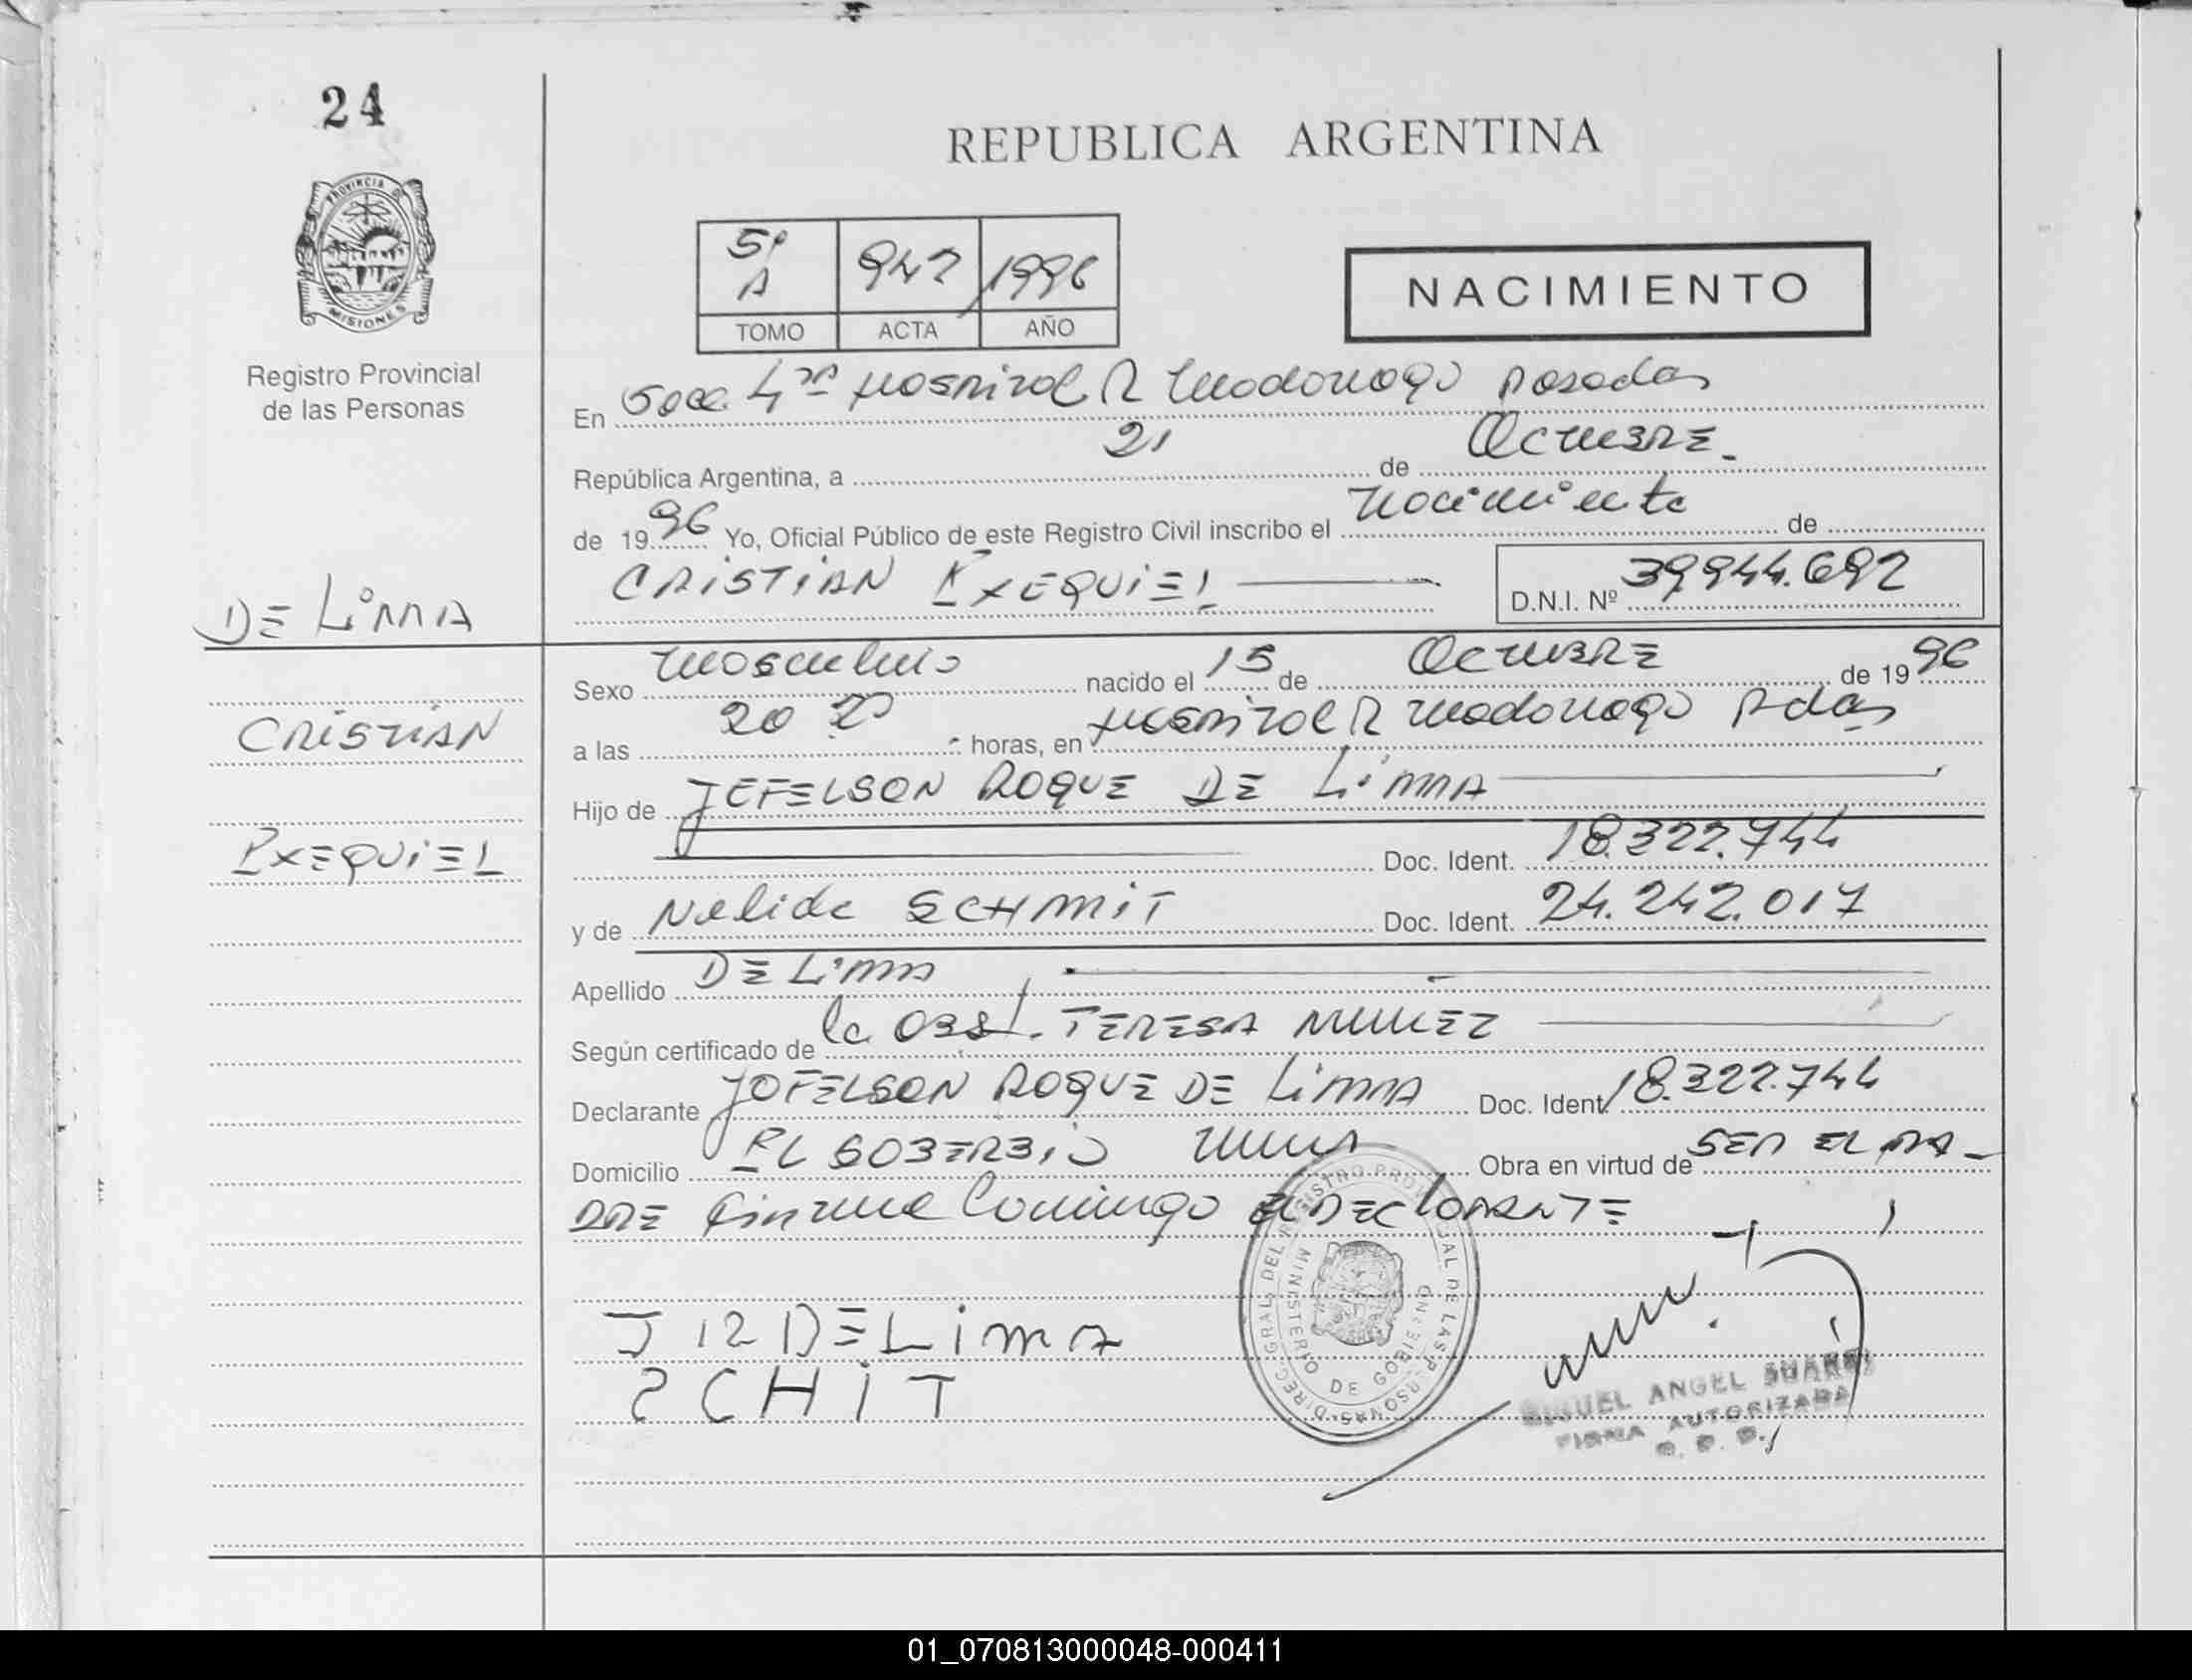 24
PROVINCIA DE
MISIONES
Registro Provincial
de las Personas
DE LiMA
CRISTIAN
EXEQUiEL
REPUBLICA ARGENTINA
5º A 947 1996
TOMO ACTA AÑO
NACIMIENTO
En Secc 4ta Hospital R Madariaga Posadas
República Argentina, a 21 de OCTUBRE
de 1996 Yo, Oficial Público de este Registro Civil inscribo el Nacimiento de
CRISTIAN EXEQUiEL
D.N.I. Nº 39.944.692
Sexo Masculino nacido el 15 de OCTUBRE de 1996
a las 20 horas, en Hospital R Madariaga Pdas
Hijo de JEFELSON ROQUE DE LiMA
Doc. Ident. 18.322.744
y de Nelida SCHMiT Doc. Ident. 24.242.017
Apellido DE LiMA
Según certificado de la OBST. TERESA NUÑEZ
Declarante JOFELSON ROQUE DE LiMA Doc. Ident. 18.322.744
Domicilio EL SOBERBIO Mnes Obra en virtud de SER EL PA-
DRE Firma Conmigo El DECLARANTE
J R DE LimA
SCHiT
DIREC. GRAL. DEL REGISTRO PROVINCIAL DE LAS PERSONAS
MINISTERIO DE GOBIERNO
MIGUEL ANGEL SUAREZ
FIRMA AUTORIZADA
01_070813000048-000411